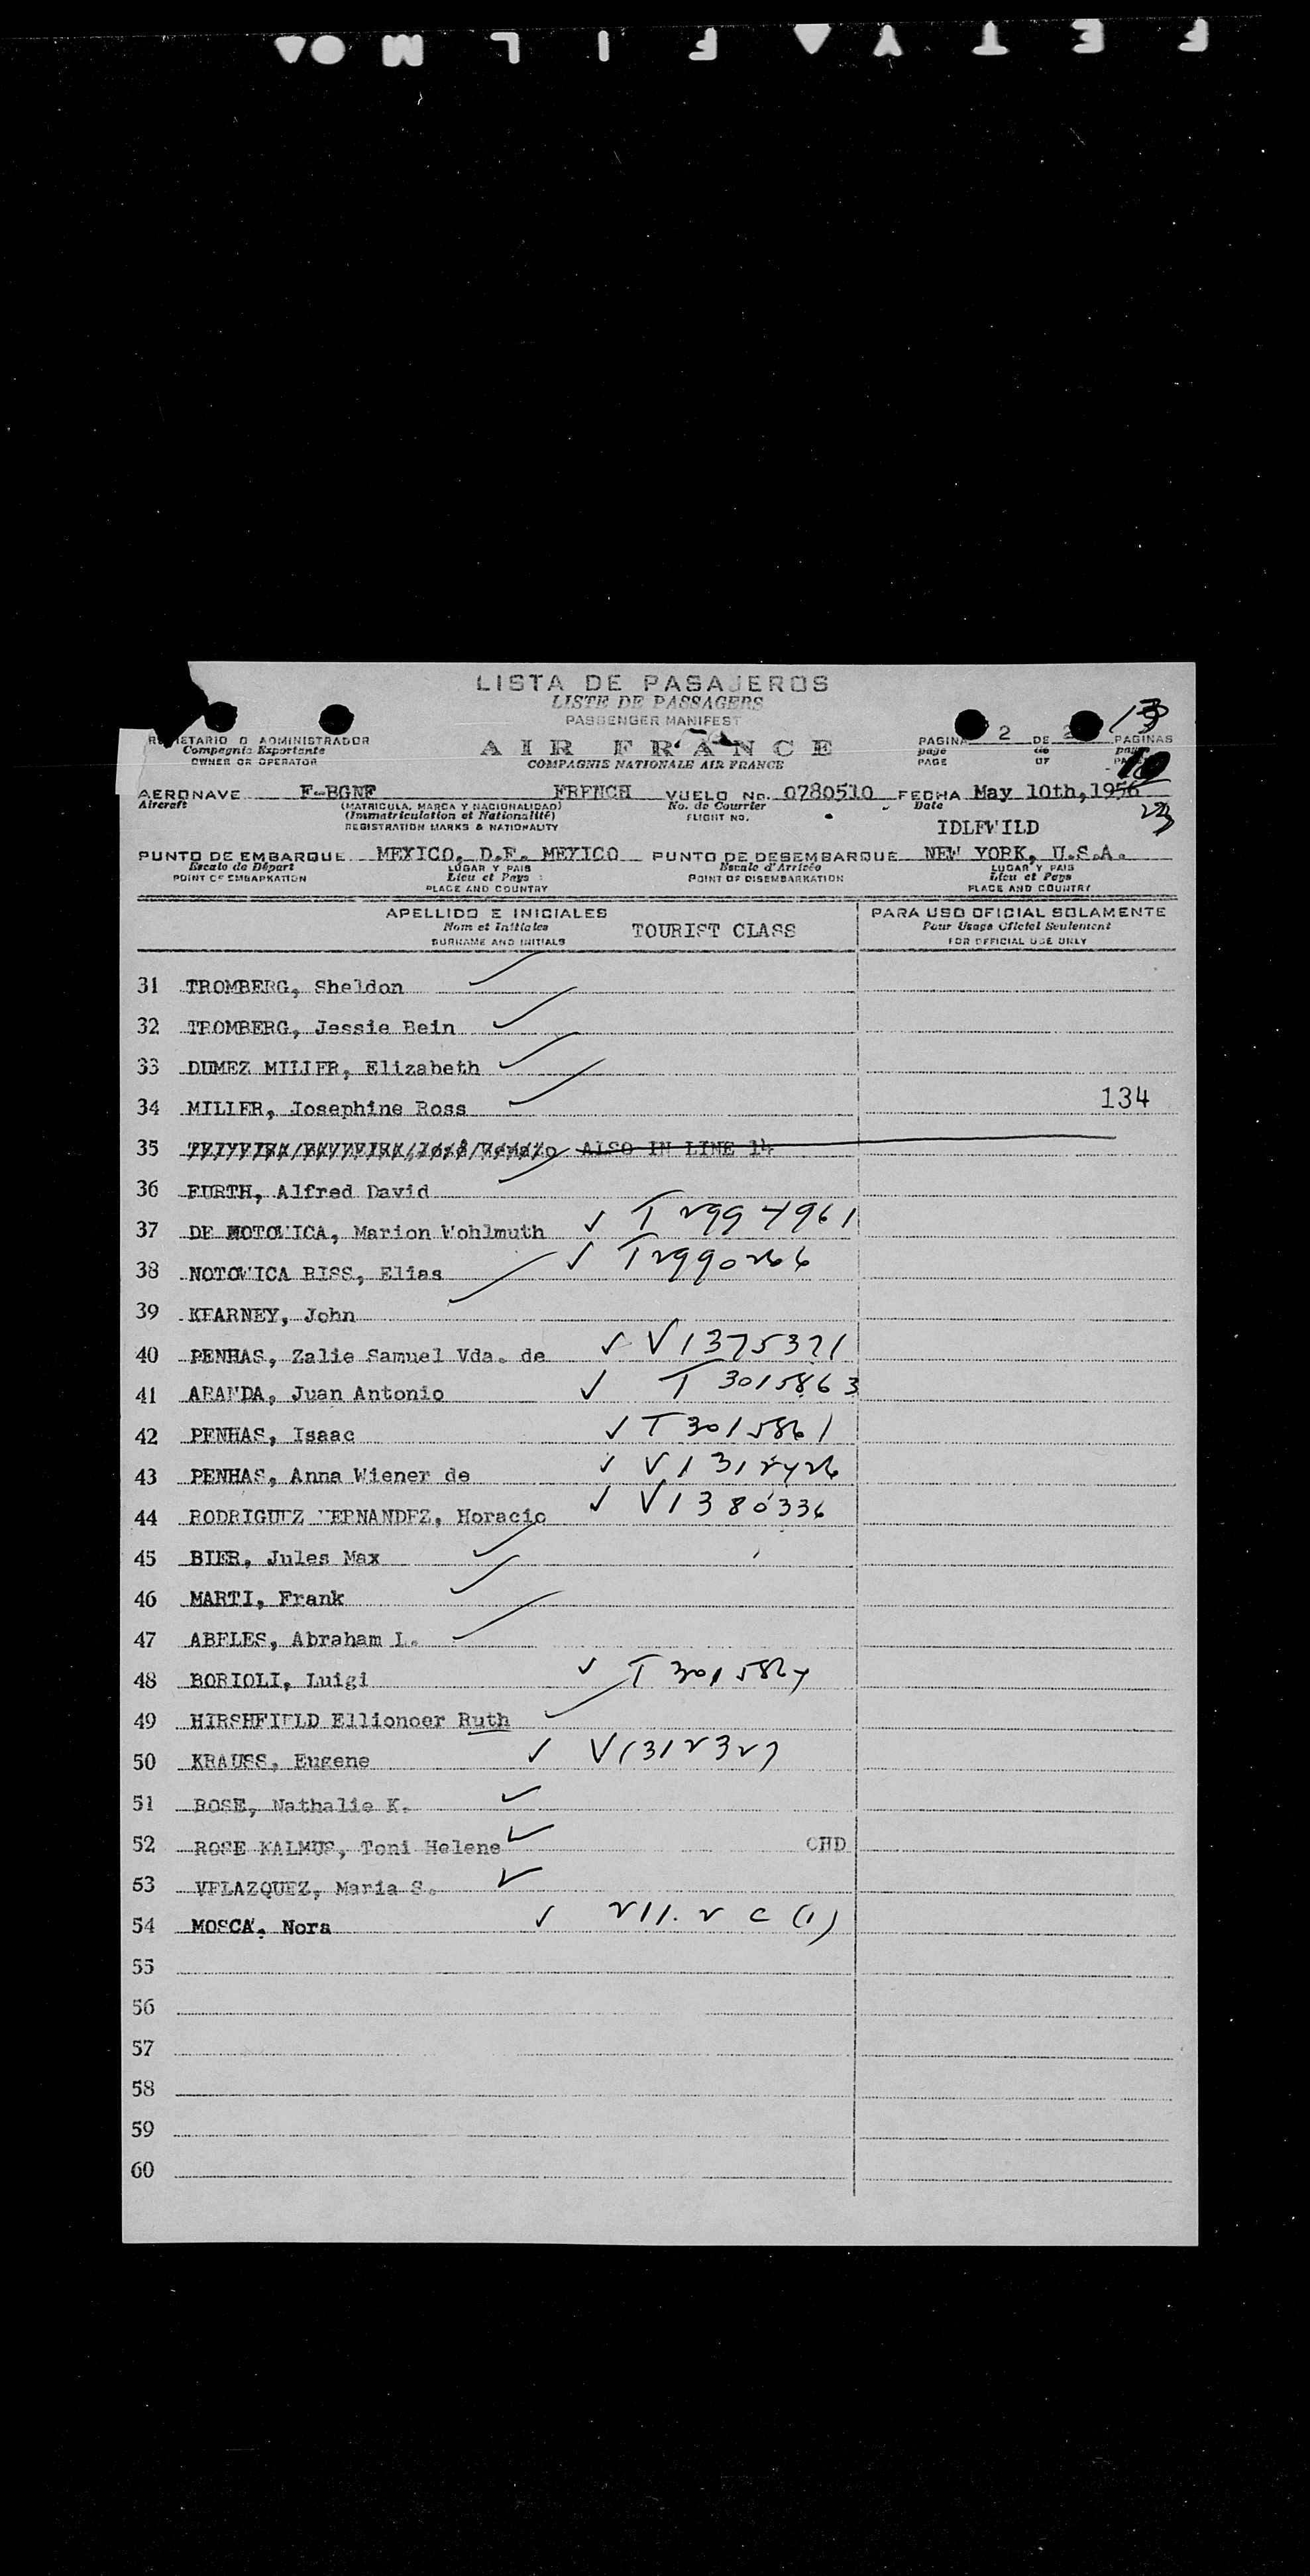 SAFETY FILM
LISTA DE PASAJEROS
LISTE DE PASSAGERS
PASSENGER MANIFEST
13
ETARIO O ADMINISTRADOR
Compagnie Exportante
OWNER OR OPERATOR
AIR FRANCE
COMPAGNIE NATIONALE AIR FRANCE
PAGINA 2 DE 2 PAGINAS
page de pages
PAGE OF
10
AERONAVE F-BGNF FRENCH VUELO No. 0780510 FECHA May 10th, 1956
Aircraft (MATRICULA, MARCA Y NACIONALIDAD) No. de Courrier Date
(Immatriculation et Nationalité) FLIGHT NO.
REGISTRATION MARKS & NATIONALITY
23
IDLEWILD
PUNTO DE EMBARQUE MEXICO, D.F. MEXICO PUNTO DE DESEMBARQUE NEW YORK, U.S.A.
Escale de Départ LUGAR Y PAIS Escale d'Arrivée LUGAR Y PAIS
POINT OF EMBARKATION Lieu et Pays POINT OF DISEMBARKATION Lieu et Pays
PLACE AND COUNTRY PLACE AND COUNTRY
APELLIDO E INICIALES PARA USO OFICIAL SOLAMENTE
Nom et Initiales TOURIST CLASS Pour Usage Officiel Seulement
SURNAME AND INITIALS FOR OFFICIAL USE ONLY
31 TROMBERG, Sheldon
32 TROMBERG, Jessie Bein
33 DUMEZ MILLER, Elizabeth
34 MILLER, Josephine Ross 134
35 ALSO IN LINE 14
36 FURTH, Alfred David
37 DE NOTOWICA, Marion Wohlmuth ✓ T 2994961
38 NOTOWICA BISS, Elias ✓ T 2990266
39 KEARNEY, John
40 PENHAS, Zalie Samuel Vda. de ✓ V1375371
41 ARANDA, Juan Antonio ✓ T 3015863
42 PENHAS, Isaac ✓ T 3015861
43 PENHAS, Anna Wiener de ✓ V1312426
44 RODRIGUEZ HERNANDEZ, Horacio ✓ V1380336
45 BIER, Jules Max
46 MARTI, Frank
47 ABELES, Abraham I.
48 BORIOLI, Luigi ✓ T 3015824
49 HIRSHFIELD Ellionoer Ruth
50 KRAUSS, Eugene ✓ V1312327
51 ROSE, Nathalie K. ✓
52 ROSE KALMUS, Toni Helene ✓ CHD
53 VELAZQUEZ, Maria S. ✓
54 MOSCA, Nora ✓ 211.2 c (1)
55
56
57
58
59
60